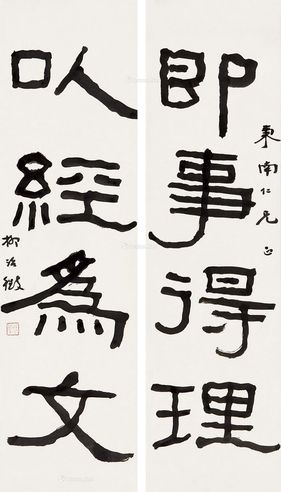 即事得理
東南仁兄正
以經為文
柳詒徵